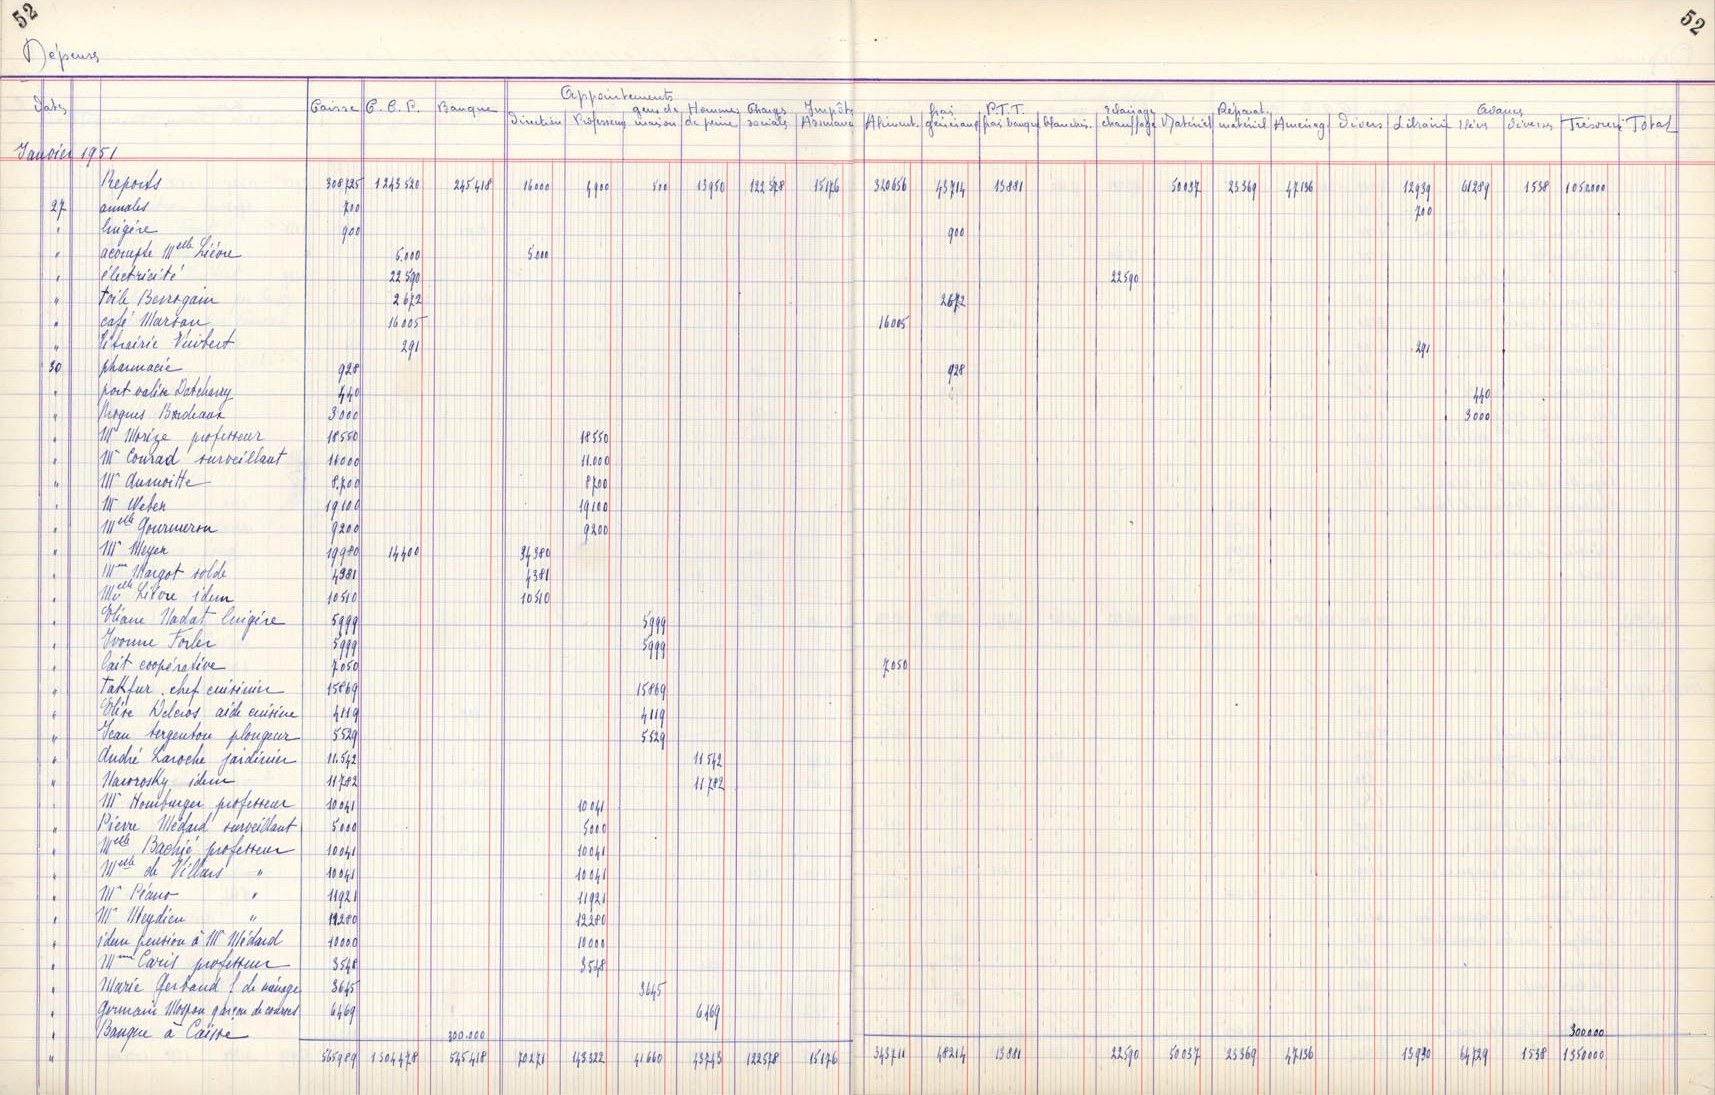 52 52
Dépenses
Appointements
Dates Caisse C.C.P. Banque Direction Professeurs gens de maison Hommes de peine Charges sociales Impôts Assurance Aliment. frais généraux P.T.T. frais banque blanchis. Eclairage chauffage Matériel Réparat. matériel Aménag. Divers Librairie Avances élèves diverses Trésorerie Total
Janvier 1951
Reports 308725 1243520 245418 16000 4900 500 13950 122578 15176 320656 43714 13881 50037 23369 47136 12939 61289 1538 1050000
27 annales 700 700
" lingère 900 900
" acompte Melle Lièvre 5.000 5000
" électricité 22590 22590
" toile Berrogain 2672 2672
" café Marsan 16005 16005
" librairie Vuibert 291 291
30 pharmacie 928 928
" port valise Datcharry 440 440
" Rogues Bordeaux 3000 3000
" Mr Morize professeur 18550 18550
" Mr Conrad surveillant 11000 11.000
" Mr Aumoitte 8700 8700
" Mr Weber 19100 19100
" Melle Gourmeron 9200 9200
" Mr Meyer 19980 14400 34380
" Mme Margot solde 4381 4381
" Melle Lièvre idem 10510 10510
" Eliane Nadat lingère 5999 5999
" Yvonne Forler 5999 5999
" lait coopérative 7050 7050
" Takfur chef cuisinier 15869 15869
" Elise Delcros aide cuisine 4119 4119
" Jean Sergenton plongeur 5529 5529
" André Laroche jardinier 11.542 11542
" Naworosky idem 11782 11782
" Mr Homburger professeur 10041 10041
" Pierre Médard surveillant 5000 5000
" Melle Bachié professeur 10041 10041
" Melle de Villars " 10041 10041
" Mr Péano " 11921 11921
" Mr Meydieu " 12280 12280
" idem pension à Mr Médard 10000 10000
" Mme Caris professeur 3548 3548
" Marie Gerbaud f. de ménage 3645 3645
" Germain Mospou garçon de courses 6469 6469
" Banque à Caisse 300.000 300000
" 565989 1304478 545418 70271 143322 41660 43743 122578 15176 343711 48214 13881 22590 50037 23369 47136 13930 64729 1538 1350000